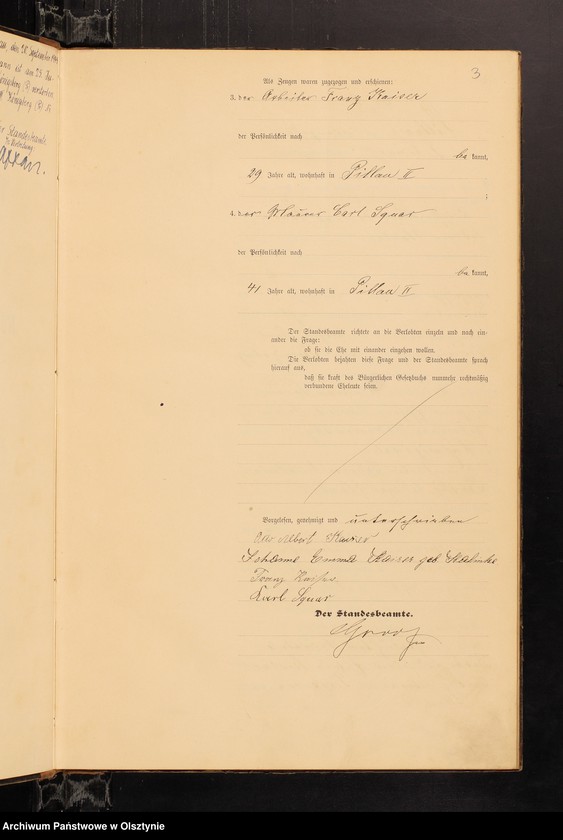 den 28. September
ist am 23.
Königsberg verstorben
Der Standesbeamte.
3
Als Zeugen waren zugezogen und erschienen:
3. der Arbeiter Franz Kaiser
der Persönlichkeit nach
be kannt,
29 Jahre alt, wohnhaft in Pillau II
;
4. der Maurer Carl Squar
der Persönlichkeit nach
be kannt,
41 Jahre alt, wohnhaft in Pillau II
Der Standesbeamte richtete an die Verlobten einzeln und nach ein-
ander die Frage:
ob sie die Ehe mit einander eingehen wollen.
Die Verlobten bejahten diese Frage und der Standesbeamte sprach
hierauf aus,
daß sie kraft des Bürgerlichen Gesetzbuchs nunmehr rechtmäßig
verbundene Eheleute seien.
Vorgelesen, genehmigt und unterschrieben
Albert Kaiser
Johanne Emma Kaiser geb.
Franz Kaiser
Karl Squar
Der Standesbeamte.
Archiwum Państwowe w Olsztynie